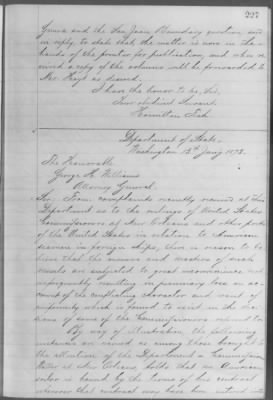 227
Geneva and the San Juan Boundary question, and
in reply, to state that the matter is now in the
hands of the printer for publication, and when
such a copy of the volumes will be forwarded to
Mr. as desired.
I have the honor to be, Sir,
Your obedient Servant,
Hamilton Fish
Department of State,
Washington 13th Jany 1873.
The Honorable
George H. Williams
Attorney General.
Sir, From complaints recently received at this
Department as to the rulings of United States
Commissioners at New Orleans and other ports
of the United States in relation to American
seamen in foreign ships, there is reason to be-
lieve that the owners and masters of such
vessels are subjected to great inconvenience not
infrequently resulting in pecuniary loss on ac-
count of the conflicting character and want of
uniformity which is found to exist in the
of some of the Commissioners referred to.
By way of illustration, the following
instances are named as among those brought to
the attention of the Department a Commissioner
at New Orleans, holds that an American
sailor is bound by the terms of his contract
wherever that contract may have been entered into